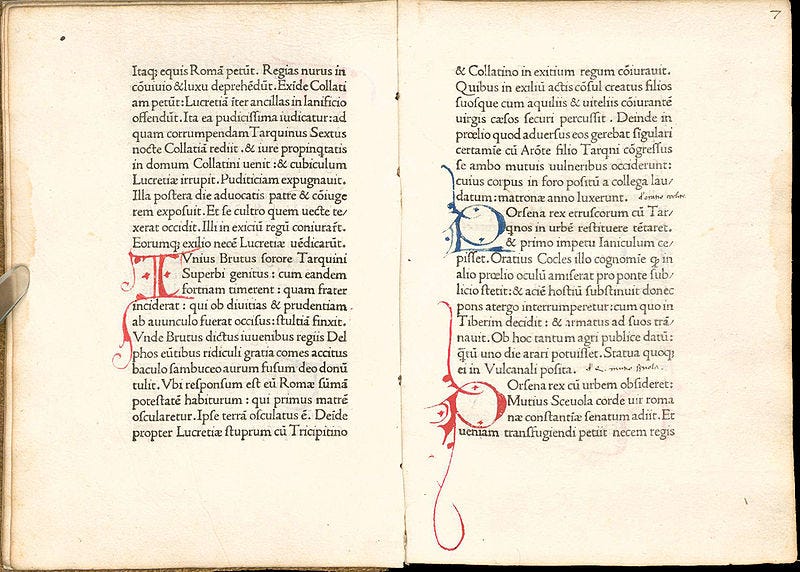 Itaq; equis Romā petūt. Regias nurus in
cōuiuio &luxu deprehēdūt. Exīde Collati
am petūt: Lucretiā īter ancillas in lanificio
offendūt. Ita ea pudicissima iudicatur: ad
quam corrumpendam Tarquinus Sextus
nocte Collatiā rediit. & iure propinqtatis
in domum Collatini uenit : & cubiculum
Lucretiæ irrupit. Pudiciciam expugnauit.
Illa postera die aduocatis patre & cōiuge
rem exposuit. Et se cultro quem uecte te/
xerat occidit. Illi in exiciū regū coniurāt.
Eorumq; exilio necē Lucretiæ uēdicarūt.
IVnius Brutus sorore Tarquini
Superbi genitus : cum eandem
fortnam timerent : quam frater
inciderat : qui ob diuitias & prudentiam
ab auunculo fuerat occisus: stultiā finxit.
Vnde Brutus dictus iuuenibus regiis Del
phos eūtibus ridiculi gratia comes accitus
baculo sambuceo aurum fusum deo donū
tulit. Vbi responsum est eū Romæ sūmā
potestatē habiturum : qui primus matrē
oscularetur. Ipse terrā osculatus ē. Deīde
propter Lucretiæ stuprum cū Tricipitino
7
& Collatino in exitium regum cōiurauit.
Quibus in exiliū actis cōsul creatus filios
suosque cum aquiliis & uiteliis cōiurantē
uirgis cæsos securi percussit . Deinde in
prœlio quod aduersus eos gerebat sigulari
certamīe cū Arōte filio Tarqni cōgressus
se ambo mutuis uulneribus occiderunt:
cuius corpus in foro positū a collega lau/
datum: matronæ anno luxerunt.
POrsena rex etruscorum cū Tar/
qnos in urbē restituere tētaret.
& primo impetu Ianiculum ce/
pisset. Oratius Cocles illo cognomīe q in
alio prœlio oculū amiserat pro ponte sub/
licio stetit: & aciē hostiū substinuit donec
pons atergo interrumperetur: cum quo in
Tiberim decidit : & armatus ad suos trā/
nauit. Ob hoc tantum agri publice datū:
qtū uno die arari potuisset. Statua quoq;
ei in Vulcanali posita.
POrsena rex cū urbem obsideret:
Mutius Sceuola corde uir roma
næ constantiæ senatum adiit. Et
ueniam transfugiendi petiit necem regis